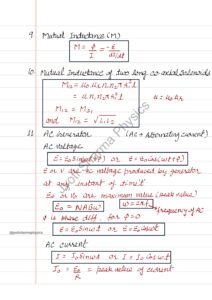 9. Mutual Inductance (M)
M = φ/I = -ε/(dI/dt)
10. Mutual Inductance of two long co-axial solenoids
M₁₂ = μ₀ μᵣ n₁ n₂ π r₁² l
= μ n₁ n₂ π r₁² l
μ = μ₀ μᵣ
M₁₂ = M₂₁
and M₁₂ = √L₁L₂
11. AC Generator (AC → Alternating current)
AC Voltage
E = E₀ Sin(ωt+φ) or E = E₀ Cos(ωt+φ)
E or V are AC voltage produced by generator
at any instant of time 't'
E₀ or V₀ are maximum value (peak value)
E₀ = NABω
ω = 2πf
frequency of AC
φ is phase diff. for φ=0
E = E₀ Sinωt or E = E₀ Cosωt
AC current
I = I₀ Sinωt or I = I₀ Cosωt
I₀ = E₀/R = peak value of current
Physics